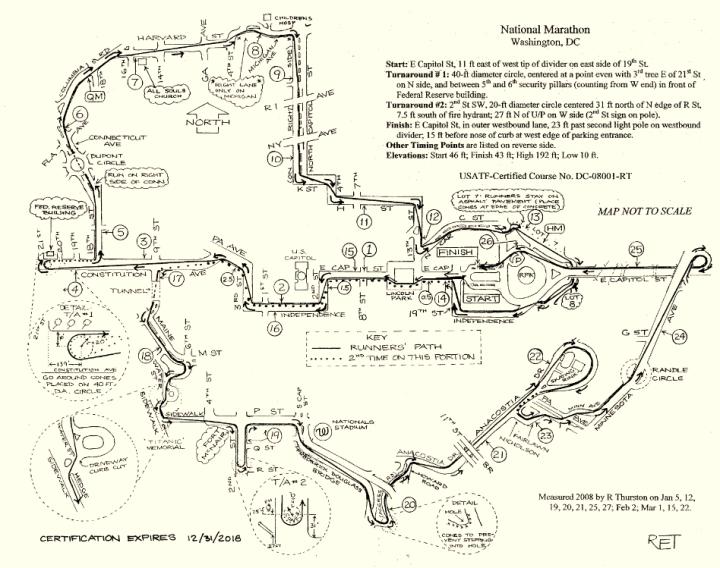 National Marathon
Washington, DC
Start: E Capitol St, 11 ft east of west tip of divider on east side of 19th St.
Turnaround # 1: 40-ft diameter circle, centered at a point even with 3rd tree E of 21st St
on N side, and between 5th and 6th security pillars (counting from W end) in front of
Federal Reserve building.
Turnaround #2: 2nd St SW, 20-ft diameter circle centered 31 ft north of N edge of R St,
7.5 ft south of fire hydrant; 27 ft N of U/P on W side (2nd St sign on pole).
Finish: E Capitol St, in outer westbound lane, 23 ft past second light pole on westbound
divider; 15 ft before nose of curb at west edge of parking entrance.
Other Timing Points are listed on reverse side.
Elevations: Start 46 ft; Finish 43 ft; High 192 ft; Low 10 ft.
USATF-Certified Course No. DC-08001-RT
MAP NOT TO SCALE
CHILDRENS
HOSP
HARVARD
ST
AVE
COLUMBIA RD
18th ST
16th ST
QM
7
8
ALL SOULS
CHURCH
GA
4TH ST
MICHIGAN AVE
RIGHT LANE
ONLY ON
MICHIGAN
9
NORTH
RIGHT SIDE
ON
NORTH CAPITOL
RI AVE
NY AVE
10
K ST
4TH
7TH
H
11
6
AVE
CONNECTICUT
AVE
FLA
DUPONT
CIRCLE
RUN ON RIGHT
SIDE OF CONN.
FED. RESERVE
BUILDING
21 ST
20TH
19TH
18TH ST
5
3
9TH ST
4
CONSTITUTION AVE
17
TUNNEL
PA AVE
2.5
3 RD ST
1ST ST
U.S.
CAPITOL
2
16
INDEPENDENCE
2ND ST
15
1
E CAP ST
1.5
8TH ST
LINCOLN
PARK
E CAP
0.5
14
13TH ST
12
C ST
13
HM
LOT 7: RUNNERS STAY ON
ASPHALT PAVEMENT (PLACE
CONES AT EDGE OF CONCRETE)
LOT 7
FINISH
26
RFK
START
19TH ST
INDEPENDENCE
LOT
8
25
E CAPITOL ST
AVE
G ST
24
RANDLE
CIRCLE
MINNESOTA
KEY
RUNNERS' PATH
2ND TIME ON THIS PORTION
DETAIL
T/A #1
139'
CONSTITUTION AVE
GO AROUND CONES
PLACED ON 40 FT.
DIA. CIRCLE
MAINE
6TH ST
18
M ST
WATER ST
4TH ST
SIDEWALK
SIDEWALK
TITANIC
MEMORIAL
P ST
S CAP
ST
FORT
MCNAIR
19
Q ST
R ST
2ND ST
NATIONALS
STADIUM
FREDERICK DOUGLASS
BRIDGE
T/A #2
DRIVEWAY
CURB CUT
HEDGE
SIDEWALK
ANACOSTIA DR
HOWARD
ROAD
20
11TH ST
BR
21
ANACOSTIA
DR
22
PA
AVE
MINN AVE
23
FAIRLAWN
NICHOLSON
DETAIL
HOLE
CONES TO PRE-
VENT STEPPING
INTO HOLE
Measured 2008 by R Thurston on Jan 5, 12,
19, 20, 21, 25, 27; Feb 2; Mar 1, 15, 22.
CERTIFICATION EXPIRES 12/31/2018
RET